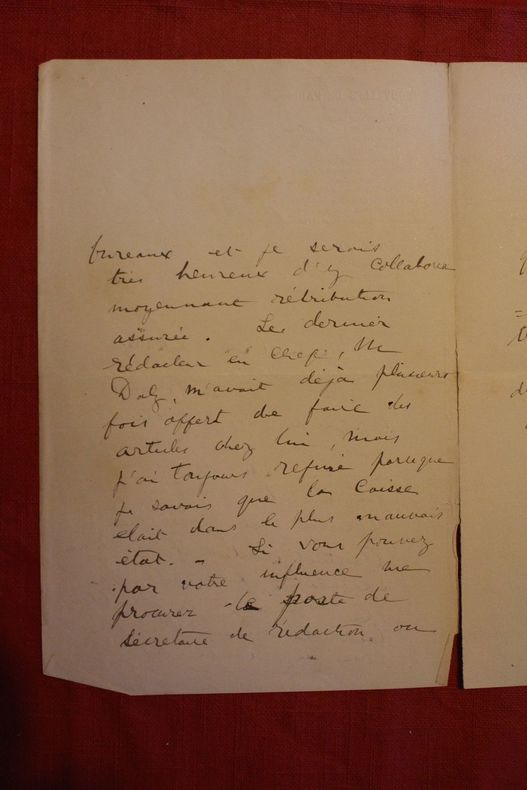 bureaux et je serais
très heureux d'y collaborer
moyennant rétribution
assurée. Le dernier
rédacteur en chef, M
m'avait déjà plusieurs
fois offert de faire des
articles chez lui, mais
j'ai toujours refusé parceque
je savais que la Caisse
était dans le plus mauvais
état. - Si vous pouvez
par votre influence me
procurer le poste de
secrétaire de rédaction ou